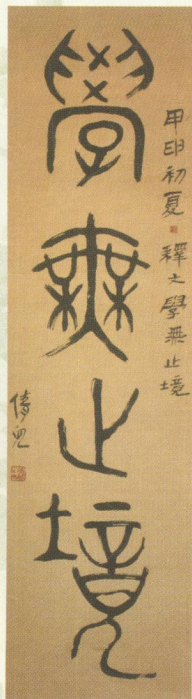 學無止境
甲申初夏 釋文學無止境